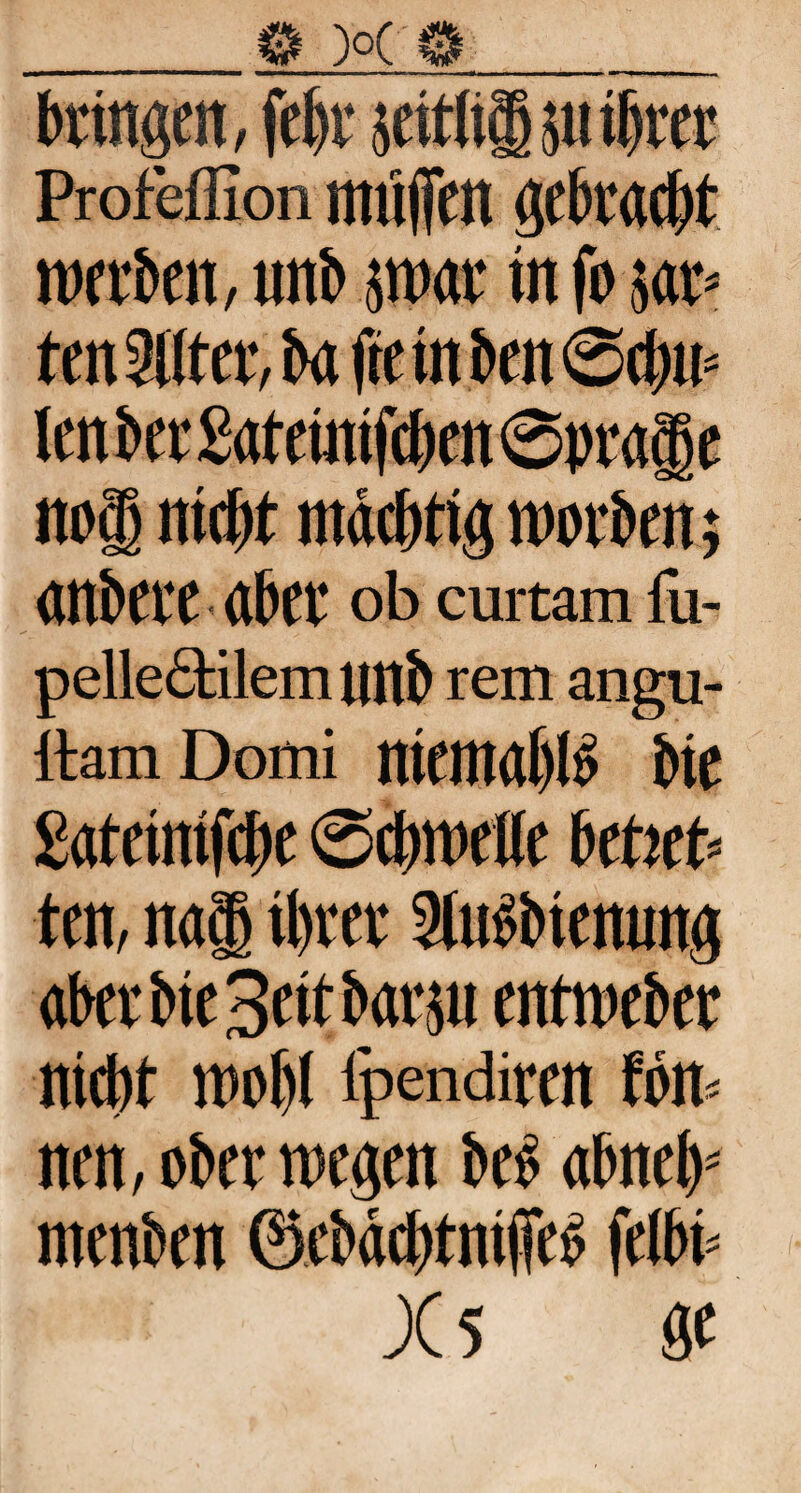 )o(
bringen, sehr zeitlich zu ihrer
Profeſſion müſſen gebracht
werden, und zwar in ſo zar⸗
ten Alter, da ſie in den Schu⸗
len der Lateiniſchen Sprache
noch nicht mächtig worden;
andere aber ob curtam ſu-
pellectilem und rem angu-
ſtam Domi niemahls die
Lateiniſche Schwelle betret⸗
ten, nach ihrer Ausdienung
aber die Zeit darzu entweder
nicht wohl ſpendiren kön⸗
nen, oder wegen des abneh⸗
menden Gedächtniſſes ſelbi⸗
)( 5 ge